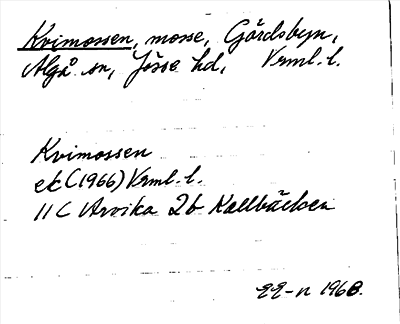 Kvimossen, mosse, Gårdsbyn,
Älgå sn, Jösse hd, Vrml. l.
Kvimossen
ek (1966) Vrml. l.
11 C Arvika 2b Kallbäcken
1968.